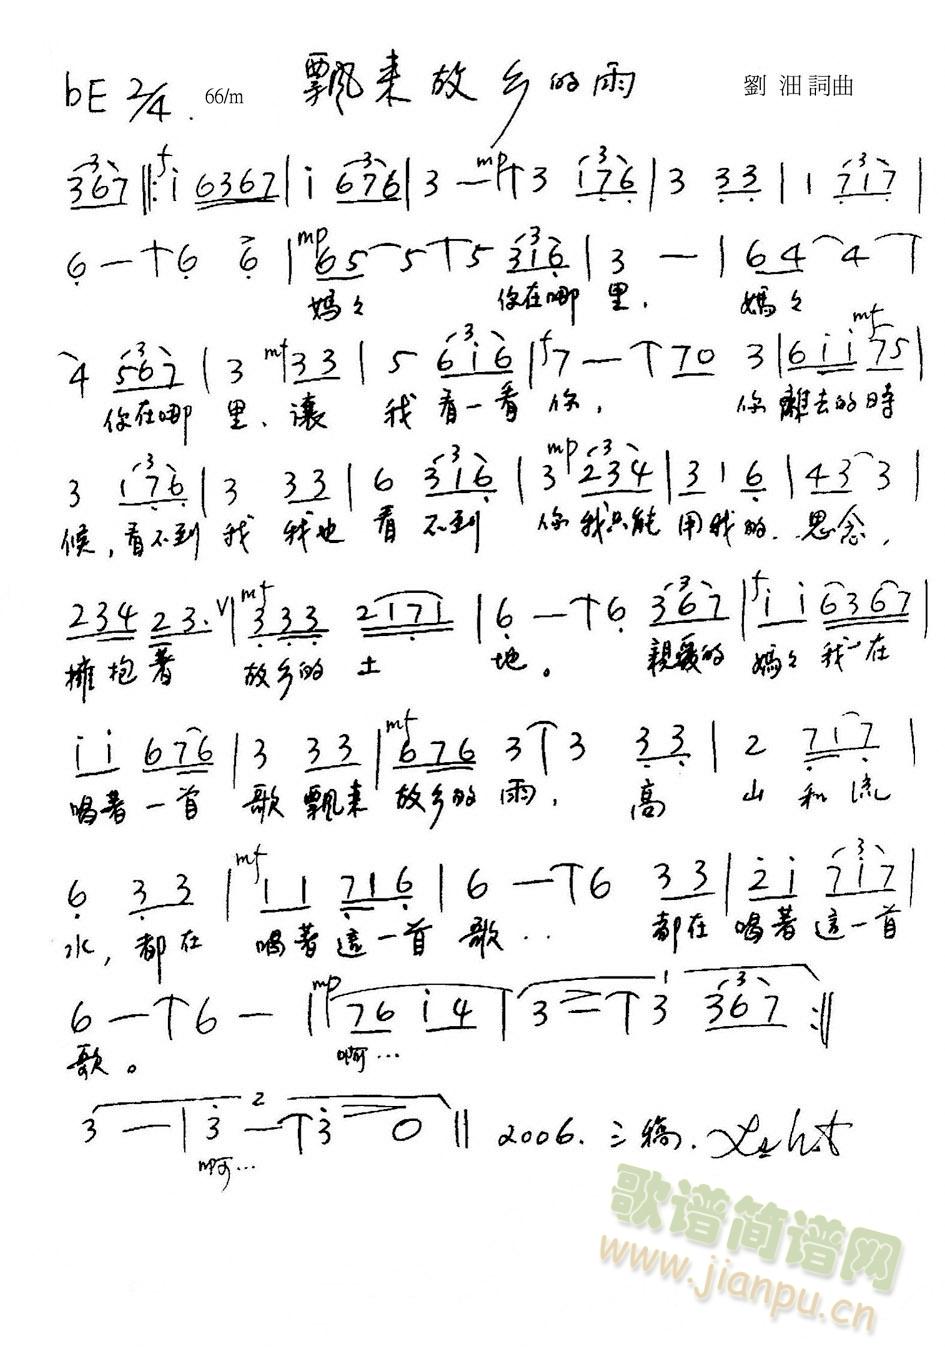 bE 2/4. 66/m 飄来故乡的雨 劉沺詞曲
3 6 7 3 f i 6367 | i 3 676 | 3 — mp 3 3 i76 | 3 33 | 1 3 717 |
6 — 6 6 | mp 65 5 5 3 316 | 3 — | 64 4
媽々 你在哪 里. 媽々
4 3 567 | 3 mf 33 | 5 3 6i6 | f 7 — 70 3 | 6ii mf 75 |
你在哪 里、讓 我 看一看 你, 你 離去的時
3 3 176 | 3 33 | 6 3 316 | 3 mp 234 | 3 1 6 | 43 3 |
候,看不到 我 我也 看 不到 你我只能 用我的. 思念,
234 23. V | mf 333 2171 | 6 — 6 3 367 | f i i 6367 |
擁抱著 故乡的 土 地。 親爱的 媽々 我一在
i i 676 | 3 33 | mf 676 3 3 33 | 2 717 |
唱著一首 歌 飄来 故乡的 雨, 高 山 和流
6 33 | mf 11 716 | 6 — 6 33 | 2i 3 7i7 |
水, 都在 唱著這一首 歌.. 都在 唱著 這一首
6 — 6 — | mp 76 i 4 | 3 = 1 3 3 367 :||
歌。 啊…
3 — | 3 2 — 3 0 || 2006. 三稿.
啊…
歌谱简谱网
www.jianpu.cn